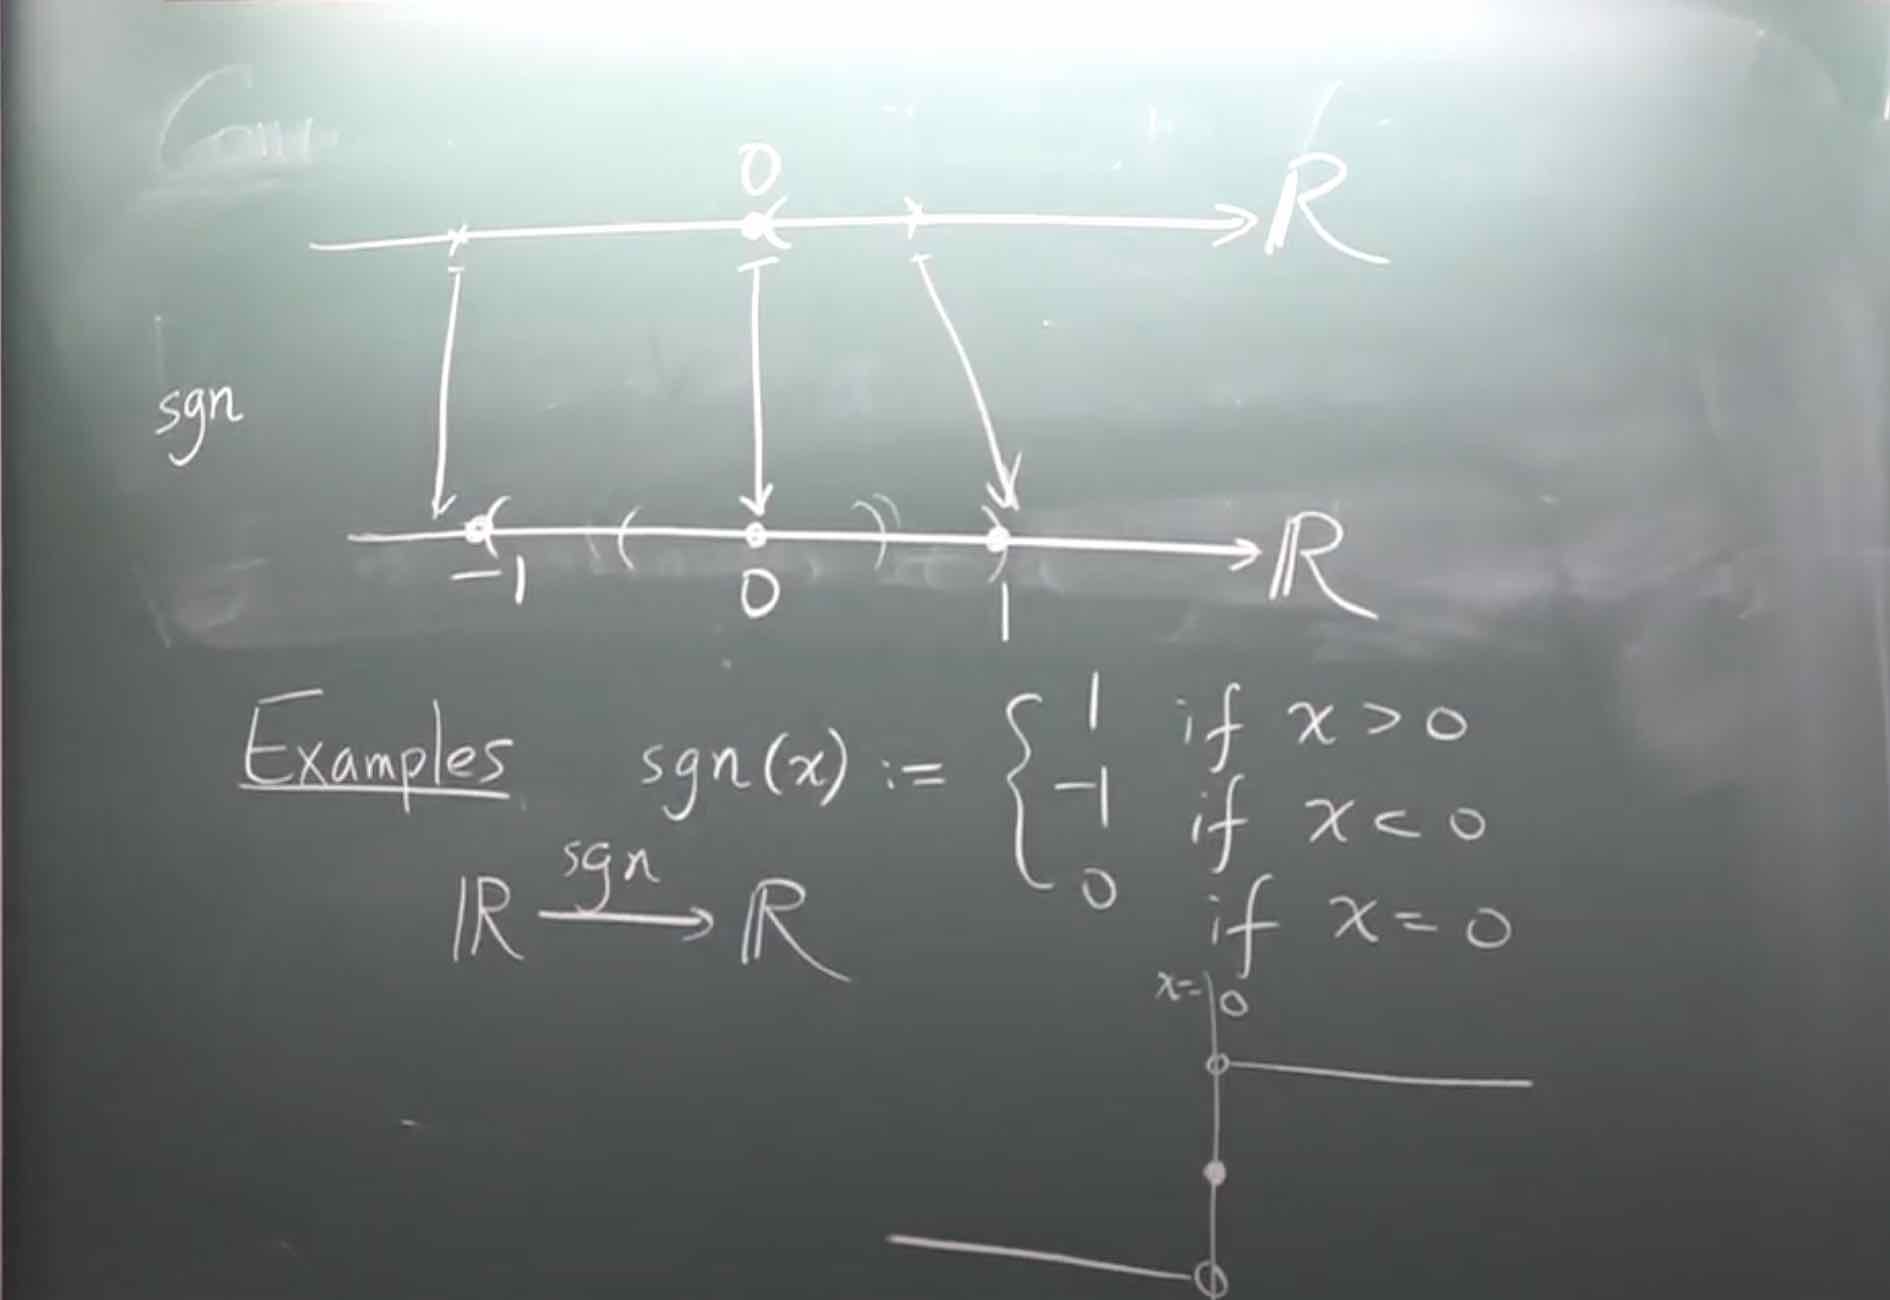 0
ℝ
sgn
-1 0 1 ℝ
Examples sgn(x) := { 1 if x > 0
-1 if x < 0
0 if x = 0
ℝ sgn → ℝ
x = 0